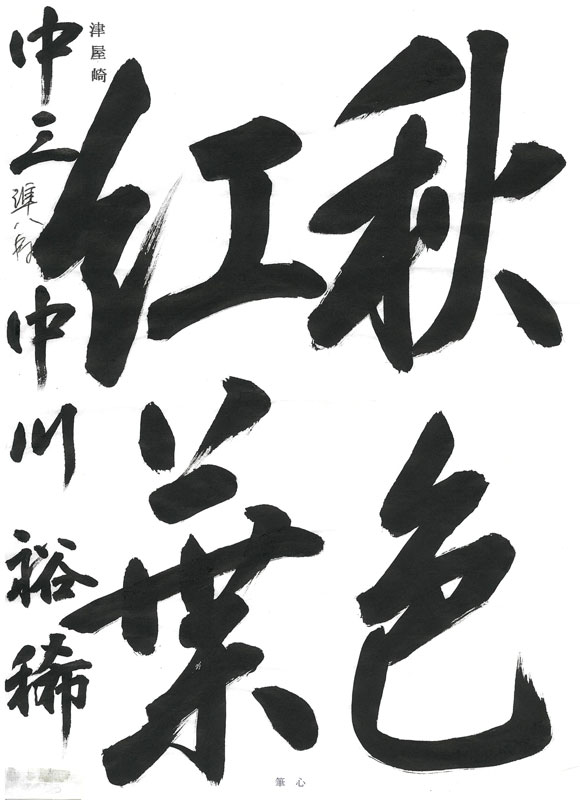 秋色
紅葉
津屋崎
中三 準八段 中川 裕稀
心筆